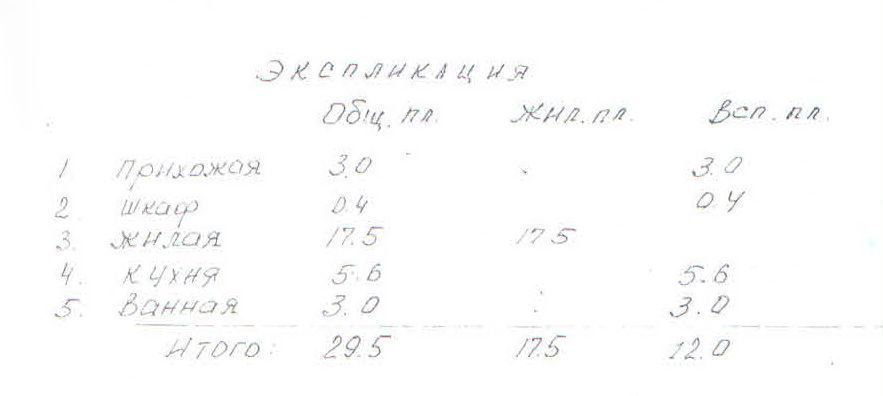 Экспликация
Общ. пл. Жил. пл. Всп. пл.
1 Прихожая 3.0 3.0
2. шкаф 0.4 0.4
3. жилая 17.5 17.5
4. кухня 5.6 5.6
5. Ванная 3.0 3.0
Итого: 29.5 17.5 12.0